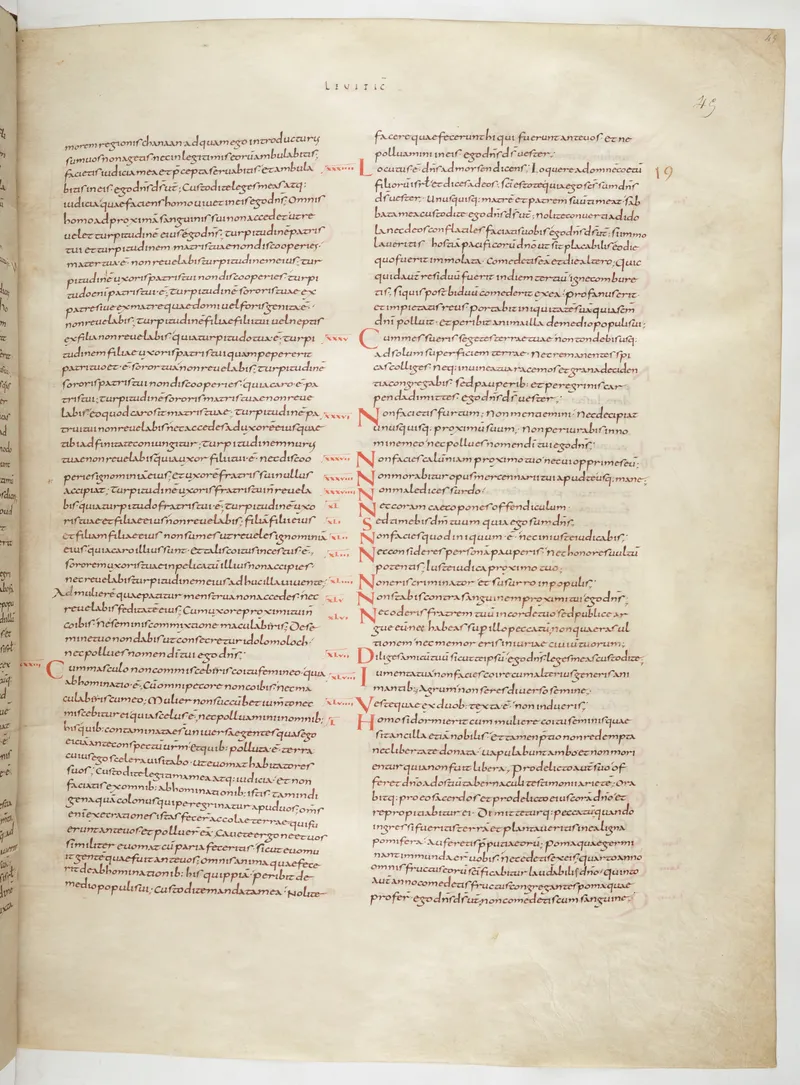 LEVITIC
49
morem regionis chanaan ad quam ego introducturus
sum uos non agetis nec in legitimis eorū ambulabitis;
facietis iudicia mea et p̄cepta seruabitis et ambula
bitis in eis; ego dn̄s d̄s ur̄; Custodite leges meas atq;
iudicia quae faciens homo uiuet in eis; ego dn̄s; Omnis
homo ad proximā sanguinis sui non accedet ut re
uelet turpitudinē eius; ego dn̄s; turpitudinē patris
tui et turpitudinem matris tuae non discooperies;
mater tua ē; non reuelabis turpitudinem eius; tur
pitudinē uxoris patris tui non discooperies; turpi
tudo enī patris tui ē; turpitudinē sororis tuae ex
patre siue ex matre quae domi uel foris genita ē;
non reuelabis; turpitudinē filiae filii tui uel neptis
ex filia non reuelabis; quia turpitudo tua ē; turpi
tudinem filiae uxoris patris tui quam peperit
patri tuo et ē soror tua non reuelabis; turpitudinē
sororis patris tui non discooperies; quia caro ē pa
tris tui; turpitudinē sororis matris tuae non reue
labis eo quod caro sit matris tuae; turpitudinē pa
trui tui non reuelabis nec accedes ad uxorē eius quae
tibi adfinitate coniungitur; turpitudinem nurus
tuae non reuelabis; quia uxor filii tui ē; nec discoo
peries ignominiā eius; et uxorē fratris sui nullus
accipiat; turpitudinē uxoris fratris tui n̄ reuela
bis; quia turpitudo fratris tui ē; turpitudinē uxo
ris tuae et filiae eius non reuelabis; filiā filii eius
et filiam filiae eius non sumes ut reueles ignominiā
eius; quia caro illius sunt; et talis coitus incestus ē;
sororem uxoris tuae in pelicatū illius non accipies;
nec reuelabis turpitudinem eius adhuc illa uiuente;
Ad mulierē quae patitur menstrua non accedes; nec
reuelabis feditatē eius; Cum uxore proximi tui n̄
coibis; nec seminis commixtione maculaberis; De se
mine tuo non dabis ut consecretur idolo moloch;
nec pollues nomen d̄i tui ego dn̄s;
Cum masculo non commiscebitis coitu femineo; quia
abhominatio ē; Cū omni pecore non coibis; nec ma
culaberis cum eo; Mulier non succūbet iumēto nec
miscebitur ei quia scelus ē; nec polluamini in omnib;
his quib; contaminatae sunt uniuersae gentes quas ego
eiciā ante conspectū ur̄m; et quib; polluta ē terra
cuius ego scelera uisitabo; ut euomat habitatores
suos; Custodite legitima mea atq; iudicia; et non
faciatis ex omnib; abhominationib; istis; tam indi
gena quā colonus qui peregrinatur apud uos; om̄s
eni execrationes istas fecer̄ accolae terrae qui fu
erunt ante uos et polluer̄ eā; Cauete ergo ne et uos
similiter euomat cū paria feceritis; sicut euomu
it gentē quae fuit ante uos; omnis anima quae fece
rit de abhominationib; his quippiā; peribit de
medio populi sui; custodite mandata mea; Nolite
xxxiii
facere quae fecerunt hi qui fuerunt ante uos; et ne
polluamini in eis; ego dn̄s d̄s uester;
xxxiiii Locutus ē dn̄s ad mosen dicens; Loquere ad omnē coetū 19
filiorū isrl̄ et dices ad eos; sc̄i estote quia ego sc̄s sum dn̄s
d̄s uester; Unusquisq; matrē et patrem suū timeat; sab
bata mea custodite ego dn̄s d̄s ur̄; nolite conuerti ad ido
la nec deos conflatiles faciatis uobis; ego dn̄s d̄s ur̄; si immo
laueritis hostiā pacificorū dn̄o ut sit placabilis; eo die
quo fuerit immolata; comedetis eā et die altero; Quic
quid aut̄ residuū fuerit in diem tertiū igne combure
tis; si quis post biduū comederit ex ea; profanus erit
et impietatis reus; portabit iniquitatē suā quia sc̄m
dn̄i polluit; et peribit anima illa de medio populi sui;
xxxv Cum messueris segetes terrae tuae non tondebis usq;
ad solum superficiem terrae; nec remanentes spi
cas colliges; neq; in uinea tua racemos et grana deciden
tia congregabis; sed pauperib; et peregrinis car
penda dimittes; ego dn̄s d̄s uester;
xxxvi Non facietis furtum; Non mentiemini; Nec decipiat
unusquisq; proximū suum; Non periurabis in no
mine meo; nec pollues nomen d̄i tui ego dn̄s;
xxxvii Non facies calūniam proximo tuo; nec ui opprimes eū;
xxxviii Non morabitur opus mercennarii tui apud te usq; mane;
xxxviiii Non maledices surdo;
xl Nec coram caeco pones offendiculum;
xli Sed timebis dn̄m tuum quia ego sum dn̄s;
xlii Non facies quod iniquum ē; nec iniuste iudicabis;
xliii Nec consideres personā pauperis; nec honores uultū
potentis; Iuste iudica proximo tuo;
xliiii Non eris criminator et susurro in populis;
xlv Non stabis contra sanguinem proximi tui ego dn̄s;
xlvi Nec oderis fratrem tuū in corde tuo sed publice ar
gue eū; nec habeas sup̄ illo peccatū; non quaeras ul
tionem; nec memor eris iniuriae ciuiū tuorum;
xlvii Diliges amicū tuū sicut teipsū ego dn̄s; leges meas custodite;
Iumenta tua non facies coire cum alterius generis ani
mantib; Agrum non seres diuerso semine;
xlviiii Veste quae ex duob; texta ē non indueris;
l Homo si dormierit cum muliere coitu seminis quae
sit ancilla etiā nobilis; et tamen pretio non redempta
nec libertate donata; uapulabunt ambo et non mori
entur quia non fuit libera; pro delicto aut̄ suo of
feret dn̄o ad ostiū tabernaculi testimonii arietē; ora
bitq; pro eo sacerdos et pro delicto eius corā dn̄o; et
repropitiabitur ei; dimitteturq; peccatū; quando
ingressi fueritis terrā et plantaueritis in ea ligna
pomifera; auferetis p̄putia eorū; poma quae germi
nant immunda erunt uobis; nec edetis ex eis; quarto anno
omnis fructus eorū sc̄ificabitur laudabilis dn̄o; quinto
aut̄ anno comedetis fructus; congregantes poma quae
profer̄; ego dn̄s d̄s ur̄; non comedetis cum sanguine;